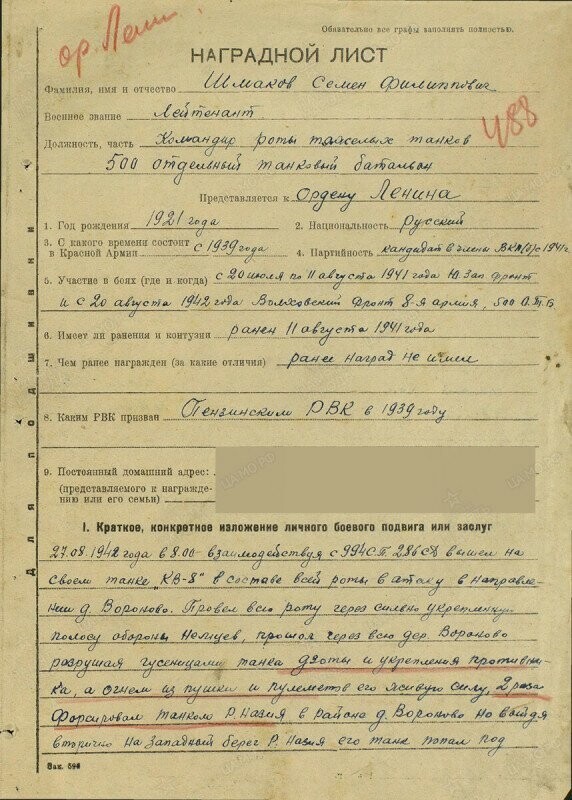 Обязательно все графы заполнять полностью.
ор. Лени
НАГРАДНОЙ ЛИСТ
Фамилия, имя и отчество Шмаков Семен Филиппович
Военное звание Лейтенант
Должность, часть Командир роты тяжелых танков
500 отдельный танковый батальон
488
Представляется к Ордену Ленина
1. Год рождения 1921 года 2. Национальность Русский
3. С какого времени состоит в Красной Армии с 1939 года 4. Партийность кандидат в члены ВКП(б) с 1941 г.
5. Участие в боях (где и когда) с 20 июля по 11 августа 1941 года Ю. Зап. фронт
и с 20 августа 1942 года Волховский фронт 8-я армия, 500 О.Т.Б.
6. Имеет ли ранения и контузии ранен 11 августа 1941 года
7. Чем ранее награжден (за какие отличия) ранее наград не имел
8. Каким РВК призван Пензинским РВК в 1939 году
9. Постоянный домашний адрес:
(представляемого к награжде-
нию или его семьи)
Для подшивания
I. Краткое, конкретное изложение личного боевого подвига или заслуг
27.08.1942 года в 8.00 взаимодействуя с 994 СП. 286 СД вышел на
своем танке „КВ-8" в составе всей роты в атаку в направле-
нии д. Вороново. Провел всю роту через сильно укрепленную
полосу обороны Немцев, прошол через всю дер. Вороново
разрушая гусеницами танка дзоты и укрепления противни-
ка, а огнем из пушки и пулеметов его живую силу, 2 раза
форсировал танком Р. Назия в районе д. Вороново но выйдя
вторично на западный берег Р. Назия его танк попал под
Зак. 594